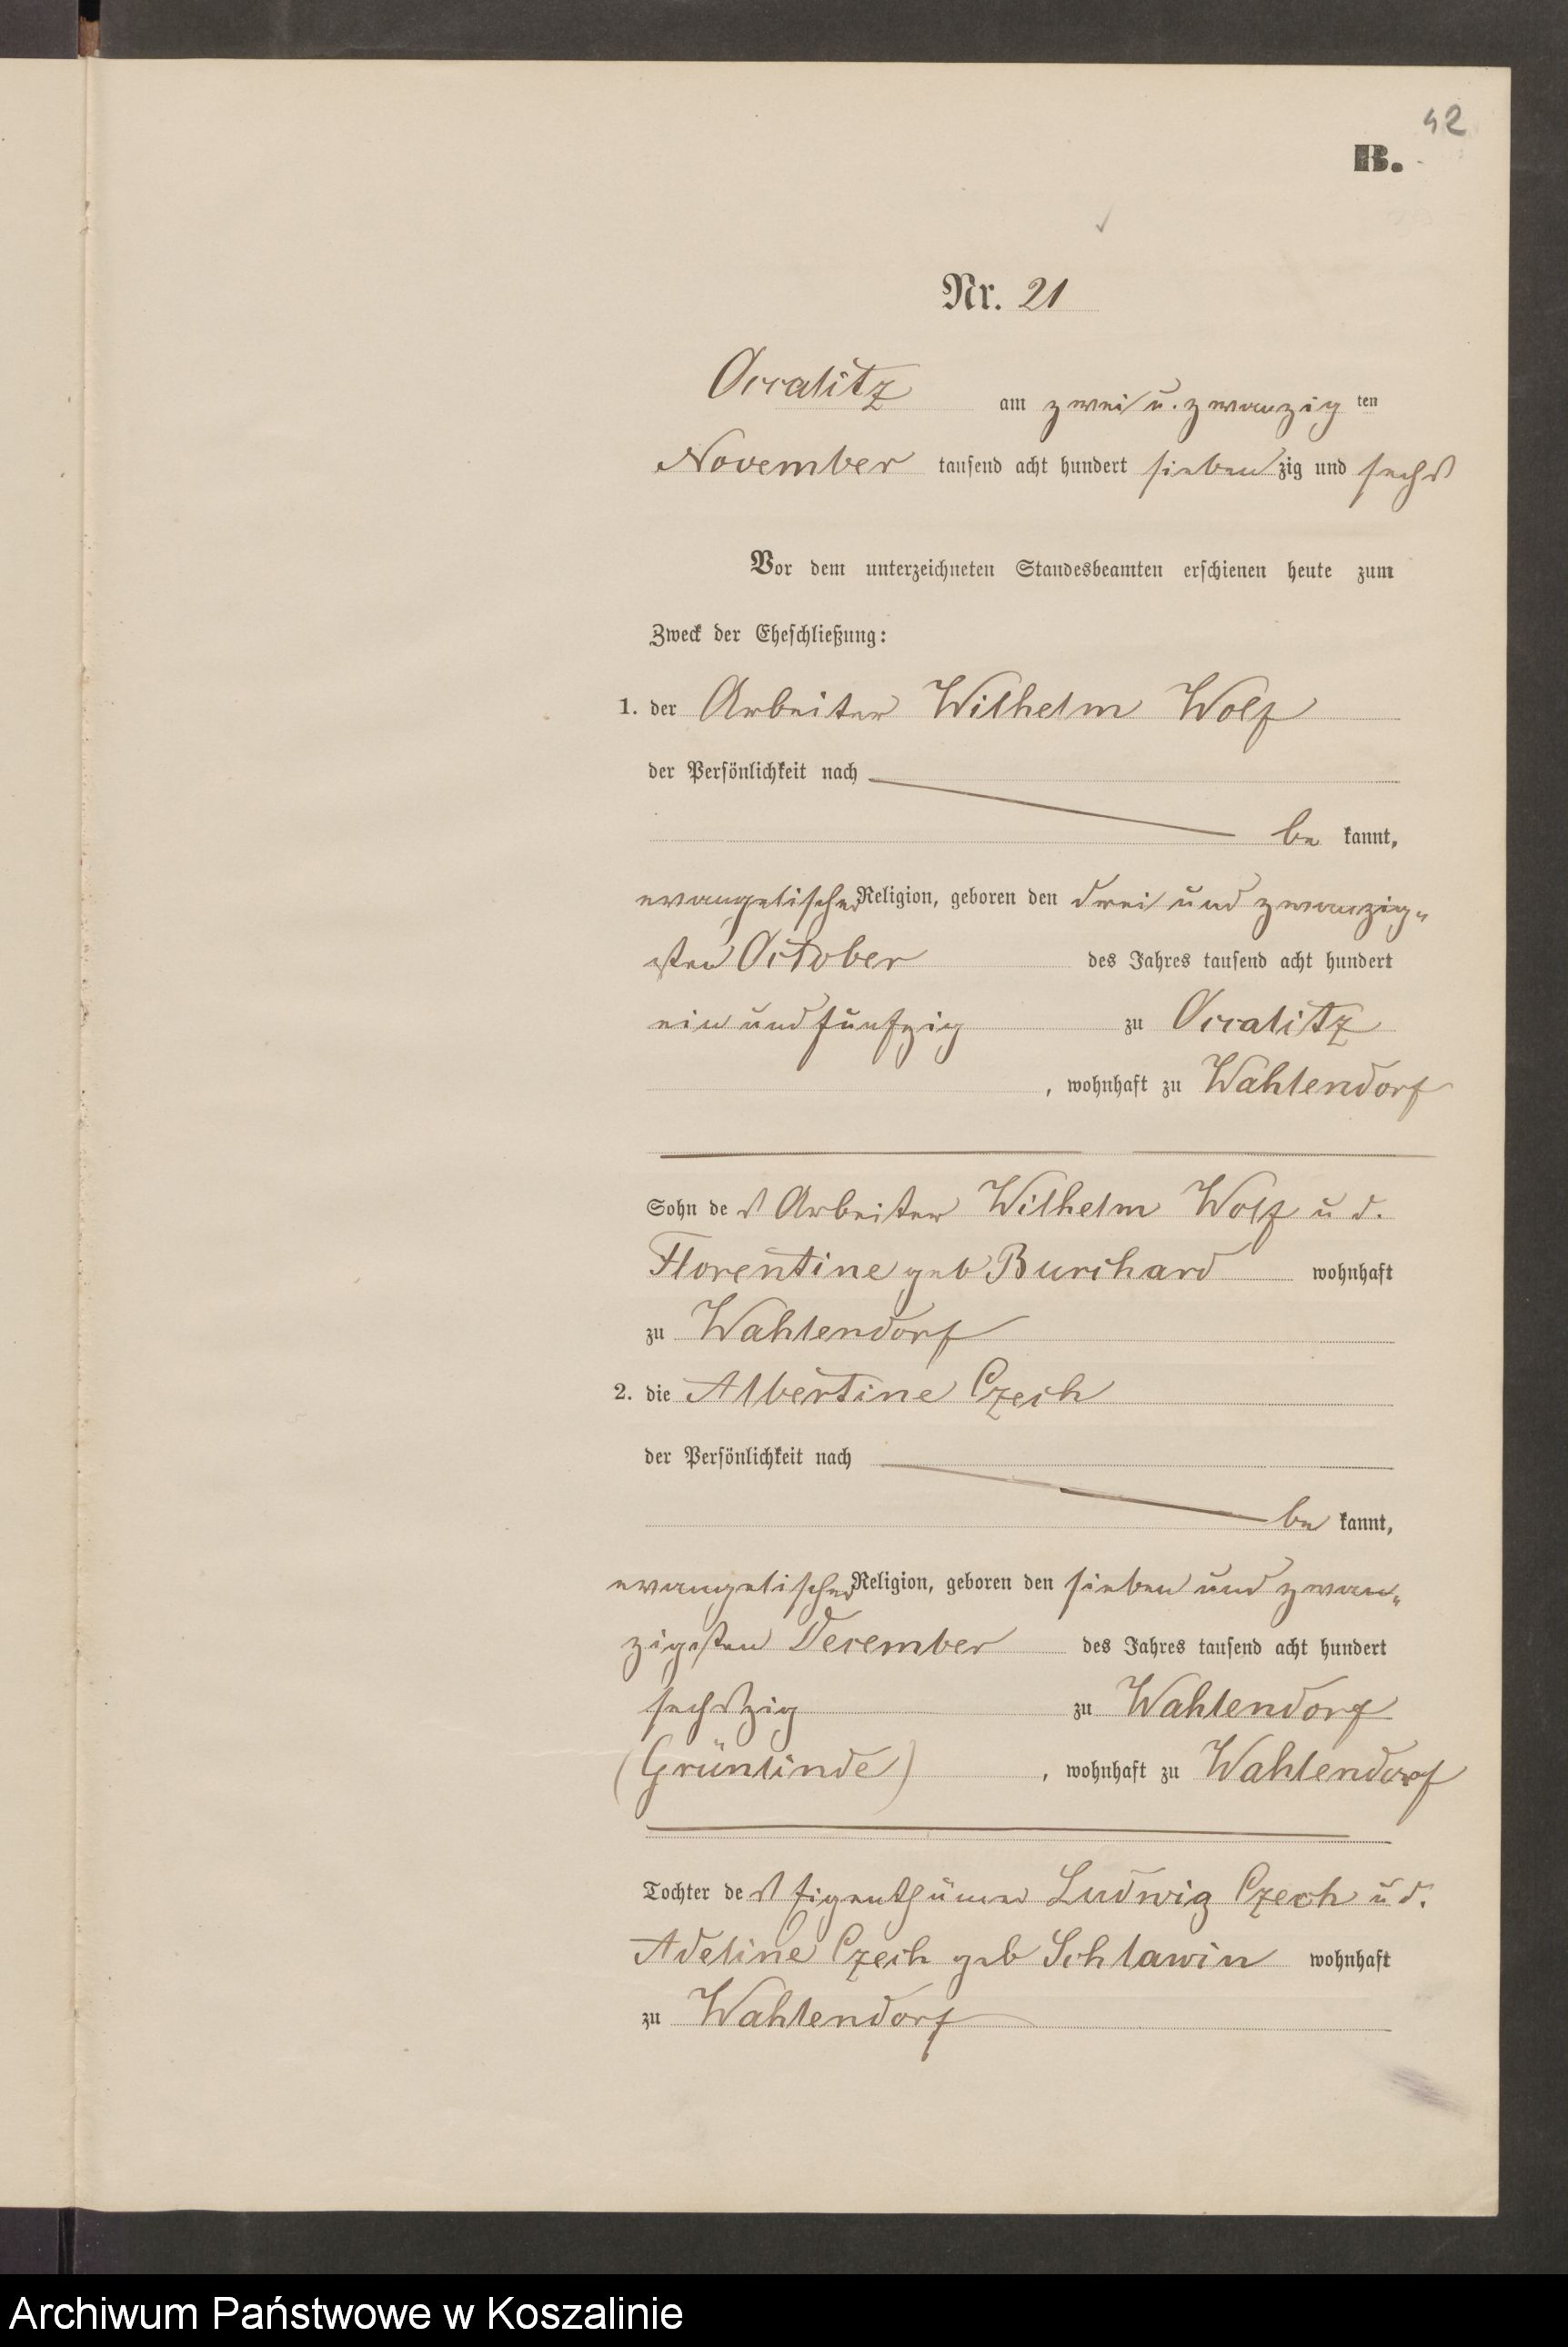 42
B.
Nr. 21
Occalitz am zwei u. zwanzig ten
November tausend acht hundert sieben zig und sechs
Vor dem unterzeichneten Standesbeamten erschienen heute zum
Zweck der Eheschließung:
1. der Arbeiter Wilhelm Wolf
der Persönlichkeit nach
be kannt,
evangelischer Religion, geboren den drei und zwanzig„
sten October des Jahres tausend acht hundert
ein und fünfzig zu Occalitz
, wohnhaft zu Wahlendorf
Sohn de s Arbeiter Wilhelm Wolf u d.
Florentine geb Burchard wohnhaft
zu Wahlendorf
2. die Albertine Czech
der Persönlichkeit nach
be kannt,
evangelischer Religion, geboren den sieben und zwan„
zigsten December des Jahres tausend acht hundert
sechszig zu Wahlendorf
(Grünlinde) , wohnhaft zu Wahlendorf
Tochter de s Eigenthümer Ludwig Czech u d.
Adeline Czech geb Schlawin wohnhaft
zu Wahlendorf
Archiwum Państwowe w Koszalinie